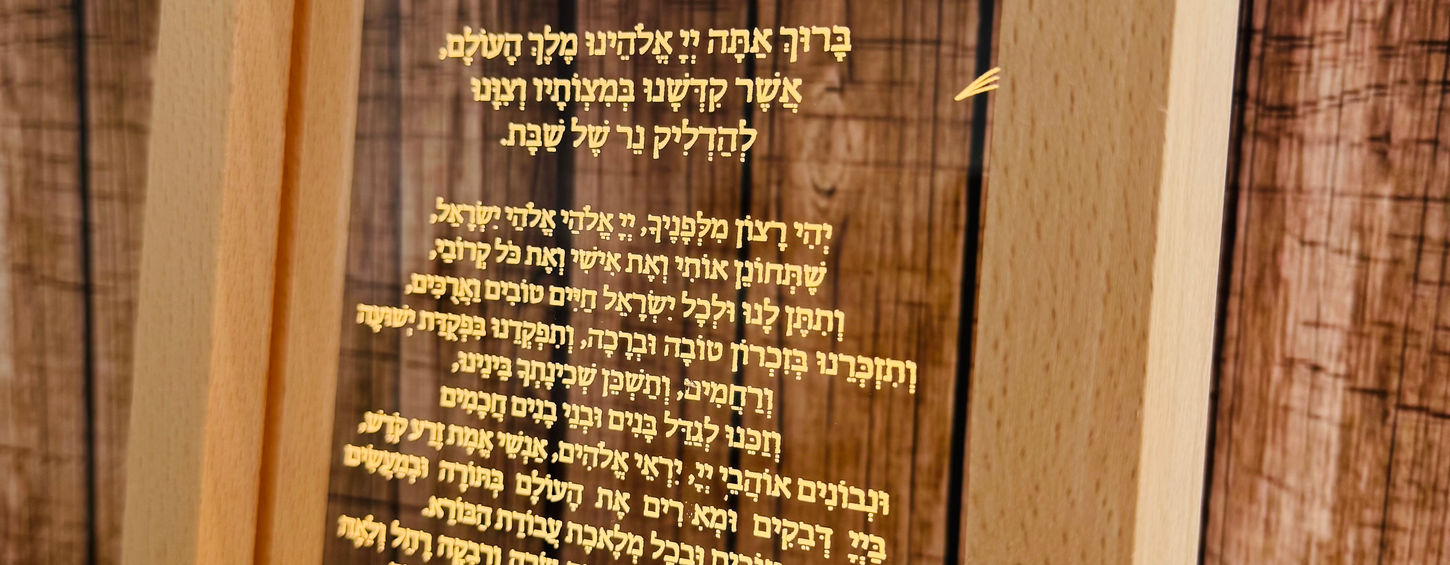 בָּרוּךְ אַתָּה יְיָ אֱלֹהֵינוּ מֶלֶךְ הָעוֹלָם,
אֲשֶׁר קִדְּשָׁנוּ בְּמִצְוֹתָיו וְצִוָּנוּ
לְהַדְלִיק נֵר שֶׁל שַׁבָּת.
יְהִי רָצוֹן מִלְּפָנֶיךָ, יְיָ אֱלֹהַי אֱלֹהֵי יִשְׂרָאֵל,
שֶׁתְּחוֹנֵן אוֹתִי וְאֶת אִישִׁי וְאֶת כֹּל קְרוֹבַי,
וְתִתֶּן לָנוּ וּלְכָל יִשְׂרָאֵל חַיִּים טוֹבִים וַאֲרֻכִּים,
וְתִזְכְּרֵנוּ בְּזִכְרוֹן טוֹבָה וּבְרָכָה, וְתִפְקְדֵנוּ בִּפְקֻדַּת יְשׁוּעָה
וְרַחֲמִים, וְתַשְׁכֵּן שְׁכִינָתְךָ בֵּינֵינוּ,
וְזַכֵּנוּ לְגַדֵּל בָּנִים וּבְנֵי בָנִים חֲכָמִים
וּנְבוֹנִים אוֹהֲבֵי יְיָ, יִרְאֵי אֱלֹהִים, אַנְשֵׁי אֱמֶת זֶרַע קֹדֶשׁ,
בַּיְיָ דְּבֵקִים וּמְאִירִים אֶת הָעוֹלָם בְּתוֹרָה וּבְמַעֲשִׂים
טוֹבִים וּבְכָל מְלֶאכֶת עֲבוֹדַת הַבּוֹרֵא.
שָׂרָה וְרִבְקָה רָחֵל וְלֵאָה